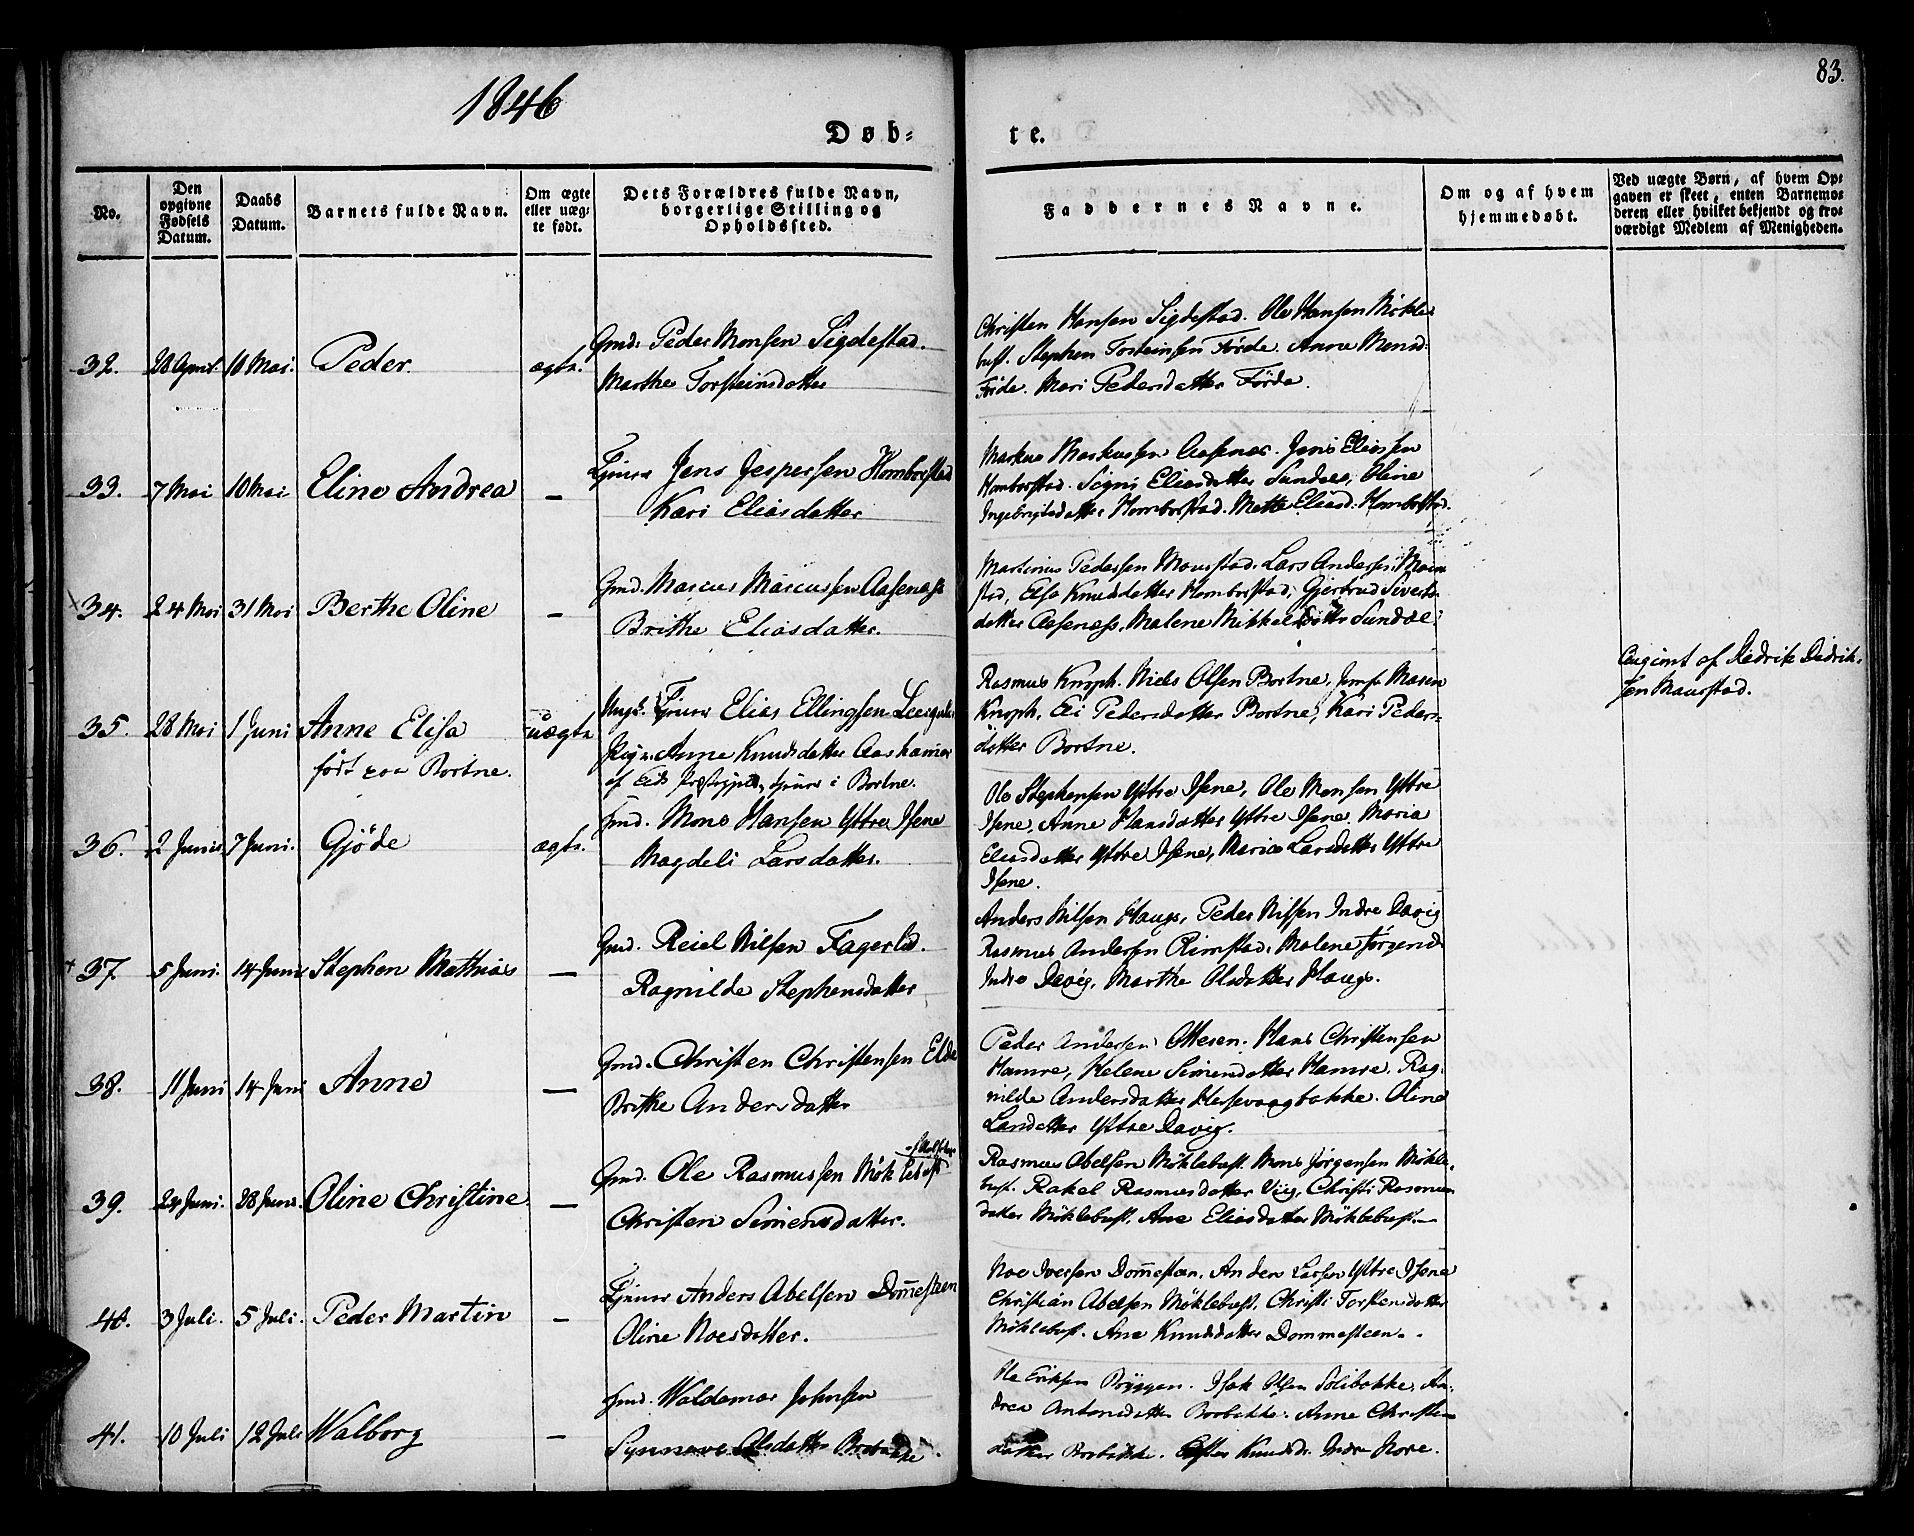 1846
83.
Døb=
te.
No.
Den opgivne Fødsels Datum.
Daabs Datum.
Barnets fulde Navn.
Om ægte eller uæg= te født.
Dets Forældres fulde Navn, borgerlige Stilling og Opholdssted.
Faddernes Navne.
Om og af hvem hjemmedøbt.
Ved uægte Børn, af hvem Op= gaven er skeet, enten Barnemo= deren eller hvilket bekjendt og tro= værdigt Medlem af Menigheden.
32. 28 April. 10 Mai. Peder. ægte.
Gmd. Peder Monsen Sigdestad.
Marthe Torsteinsdatter
Christen Hansen Sigdestad. Ole Hansen Møkle=
bust. Stephen Torsteinsen Førde. Anne Monsd.
Førde. Mari Pedersdatter Førde.
33. 7 Mai 10 Mai Eline Andrea —
Jens Jespersen Homborstad
Kari Eliasdatter
Markus Markussen Aasenæs. Jens Eliassen
Homborstad. Signi Eliasdatter Sundal, Oline
Ingebrigtsdatter Homborstad. Mette Eliasd. Homborstad.
34. 24 Mai 31 Mai Berthe Oline —
Gmd. Marcus Marcussen Aasenæs
Brithe Eliasdatter.
Martinus Pedersen Maurstad. Lars Andersen Maur
stad, Elsa Knudsdatter Homborstad, Gjertrud Siverts
datter Aasenæs. Malene Mikkelsdatter Sundal.
35. 28 Mai 1 Juni Anne Elisa uægte
født paa Bortne.
Ungk. Elias Ellingsen
Pige Anne Knudsdatter Aashamar
af Eids Præstegjeld, tjener i Bortne.
Rasmus Knoph. Niels Olsen Bortne, Jomf. Maren
Knoph, Eli Pedersdatter Bortne, Kari Peders=
datter Bortne.
Angivet af Didrik Didrik=
sen Maurstad.
36. 2 Juni 7 Juni. Gjøde ægte.
Gmd. Mons Hansen Yttre Isene
Magdeli Larsdatter.
Ole Stephensen Yttre Isene, Ole Monsen Yttre
Isene, Anne Hansdatter Yttre Isene, Maria
Eliasdatter Yttre Isene, Marie Larsdatter Yttre
Isene.
37 5 Juni. 14 Juni Stephen Mathias —
Gmd. Reiel Nilsen Fagerlid.
Ragnilde Stephensdatter
Anders Nilsen Hauge, Peder Nilsen Indre Davig
Rasmus Andersen Rimstad. Malene Jørgensd.
Indre Davig, Marthe Olsdatter Hauge.
38. 11 Juni 14 Juni Anne —
Gmd. Christen Christensen Elde
Brithe Andersdatter
Peder Andersen Ottesen. Hans Christensen
Hamre, Helene Simensdatter Hamre. Rag=
nilde Andersdatter Hessevaagbakke. Oline
Larsdatter Yttre Davig.
39. 24 Juni. 28 Juni. Oline Christine —
Gmd. Ole Rasmussen Møklebust
Christen Simensdatter.
Rasmus Abelsen Møklebust. Mons Jørgensen Møkle=
bust. Rakel Rasmusdatter Viig, Christi Rasmus
datter Møklebust. Ane Eliasdatter Møklebust.
40. 3 Juli. 5 Juli. Peder Martin —
Anders Abelsen Dom̄esteen
Oline Noesdatter.
Noe Iversen Dom̄esteen. Anders Larsen Yttre Isene
Christian Abelsen Møklebust. Christi Torstensdatter
Møklebust. Ane Knudsdatter Dommesteen.
41. 10 Juli 12 Juli Walborg —
Gmd. Waldemar Johnsen
Synneve Olsdatter Borbakke
Ole Eriksen Bryggen. Isak Olsen Solibakke. An=
drea Antonsdatter Borbakke. Anne Christens
datter Borbakke. Ester Knudsdr. Indre Nore.